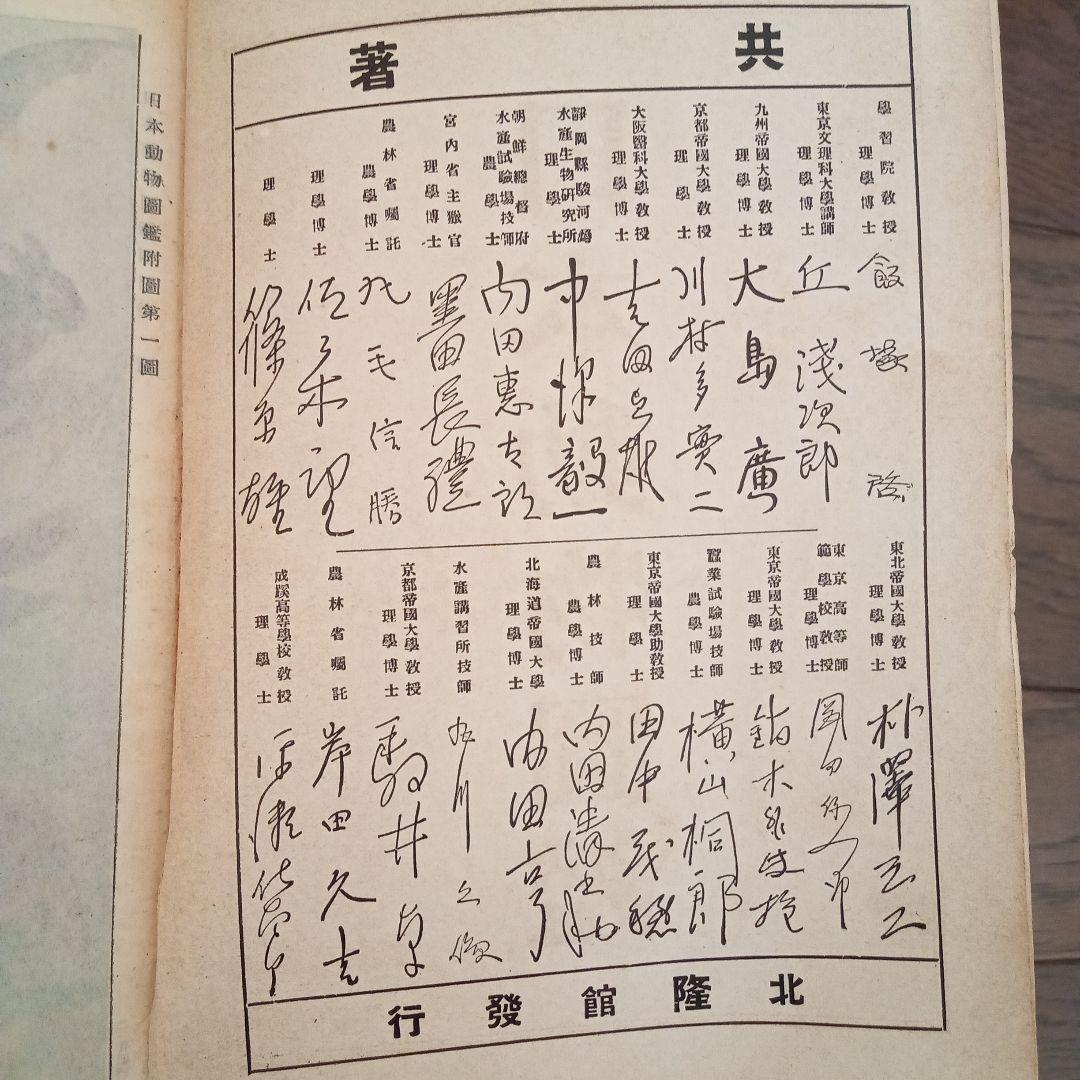 共著
學習院教授
理學博士
飯塚啓
東京文理科大學講師
理學博士
丘淺次郎
九州帝國大學教授
理學博士
大島廣
京都帝國大學教授
理學士
川村多實二
大阪醫科大學教授
理學博士
吉田貞雄
靜岡縣駿河灣
水產生物硏究所
理學士
中澤毅一
朝鮮總督府
水產試驗場技師
農學士
內田惠太郎
宮內省主獵官
理學博士
黑田長禮
農林省囑託
農學博士
丸毛信勝
理學博士
佐々木望
理學士
篠原雄
東北帝國大學教授
理學博士
朴澤三二
東京高等師
範學校教授
理學博士
岡田彌一郎
東京帝國大學教授
理學博士
鏑木外岐雄
蠶業試驗場技師
農學博士
橫山桐郎
東京帝國大學助教授
理學士
田中茂穗
農林技師
農學博士
內田淸之助
北海道帝國大學
理學博士
內田亨
水產講習所技師
丸川久俊
京都帝國大學教授
理學博士
駒井卓
農林省囑託
岸田久吉
成蹊高等學校教授
理學士
北隆館發行
旧本動物圖鑑附圖第一圖